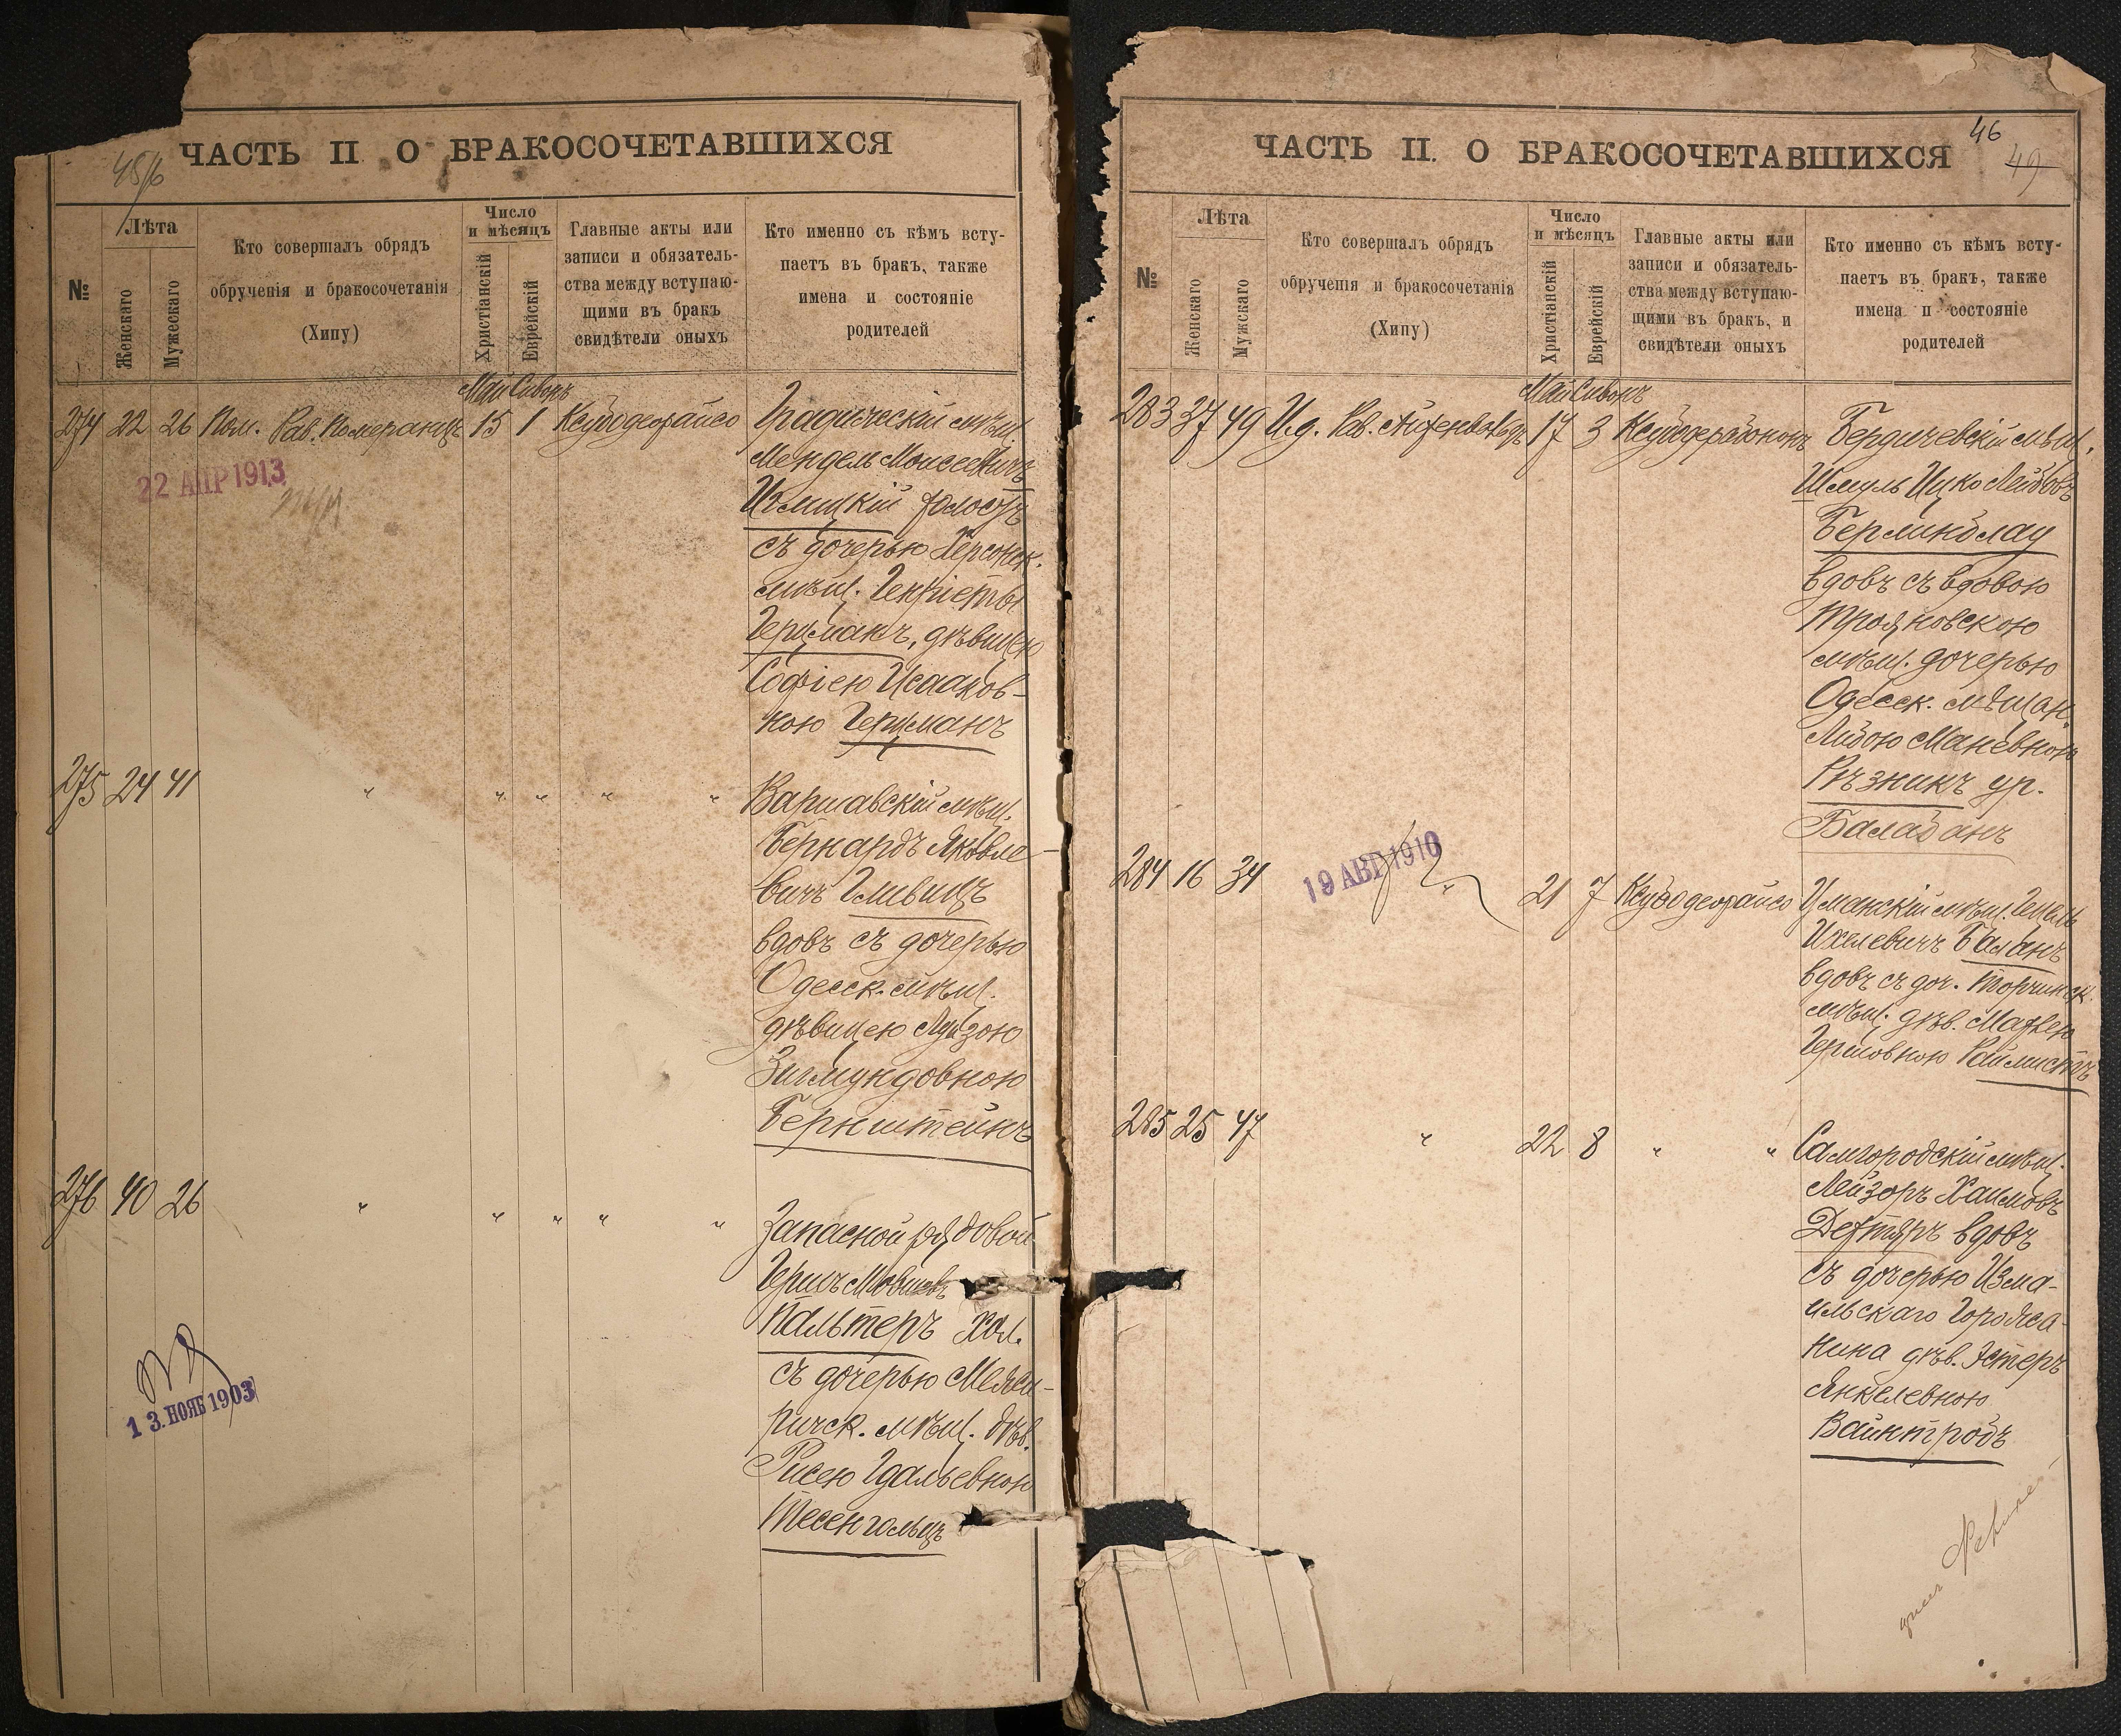 ЧАСТЬ II О БРАКОСОЧЕТАВШИХСЯ
№
Лѣта
Женскаго
Мужескаго
Кто совершалъ обрядъ
обрученія и бракосочетанія
(Хипу)
Число
и мѣсяцъ
Христіанскій
Еврейскій
Главные акты или
записи и обязатель-
ства между вступаю-
щими въ бракъ
свидѣтели оныхъ
Кто именно съ кѣмъ всту-
паетъ въ бракъ, также
имена и состояніе
родителей
Май Сиванъ
274 22 26 Пом. Рав. Померанцъ 15 1
22 АПР 1913
мѣщ.
Мендель Моисеевичъ
холостъ
съ дочерью Херсонск.
мѣщ. Генріеты
Герцманъ, дѣвицею
Софіею Исааков-
ною Герцманъ
275 24 41 " " " " "
Варшавскій мѣщ.
Бернардъ Яковле-
вичъ Гливицъ
вдовъ съ дочерью
Одесск. мѣщ.
дѣвицею Луизою
Зигмундовною
Бернштейнъ
276 40 26 " " " " "
Запасной рядовой
Гершъ Мовшовъ
Пальтеръ Хол.
съ дочерью Межи-
ричск. мѣщ. дѣв.
Рисею Гдальевною
Тесенгольцъ
13. НОЯБ 1903
ЧАСТЬ II. О БРАКОСОЧЕТАВШИХСЯ
46
49
№
Лѣта
Женскаго
Мужскаго
Кто совершалъ обрядъ
обрученія и бракосочетанія
(Хипу)
Число
и мѣсяцъ
Христіанскій
Еврейскій
Главные акты или
записи и обязатель-
ства между вступаю-
щими въ бракъ, и
свидѣтели оныхъ
Кто именно съ кѣмъ всту-
паетъ въ бракъ, также
имена и состояніе
родителей
Май Сиванъ
283 37 49 И.д. Рав. 17 3
Бердичевскій мѣщ.
Шмуль Ицко Лейбовъ
Берминблау
вдовъ съ вдовою
Трояновскою
мѣщ. дочерью
Одесск. мѣщан.
Либою Маневною
Рѣзникъ ур.
Балабанъ
284 16 34 " 21 7
19 АВГ 1910
Уманскій мѣщ.
Ихелевичъ Баланъ
вдовъ съ доч. Торчинск.
мѣщ. дѣв.
Гершовною Раймистъ
285 25 47 " 22 8 " "
Самгородскій мѣщ.
Лейзоръ Хаимовъ
Дехтяръ вдовъ
съ дочерью Изма-
ильскаго Горожа-
нина дѣв. Эстеръ
Янкелевною
Вайнтробъ